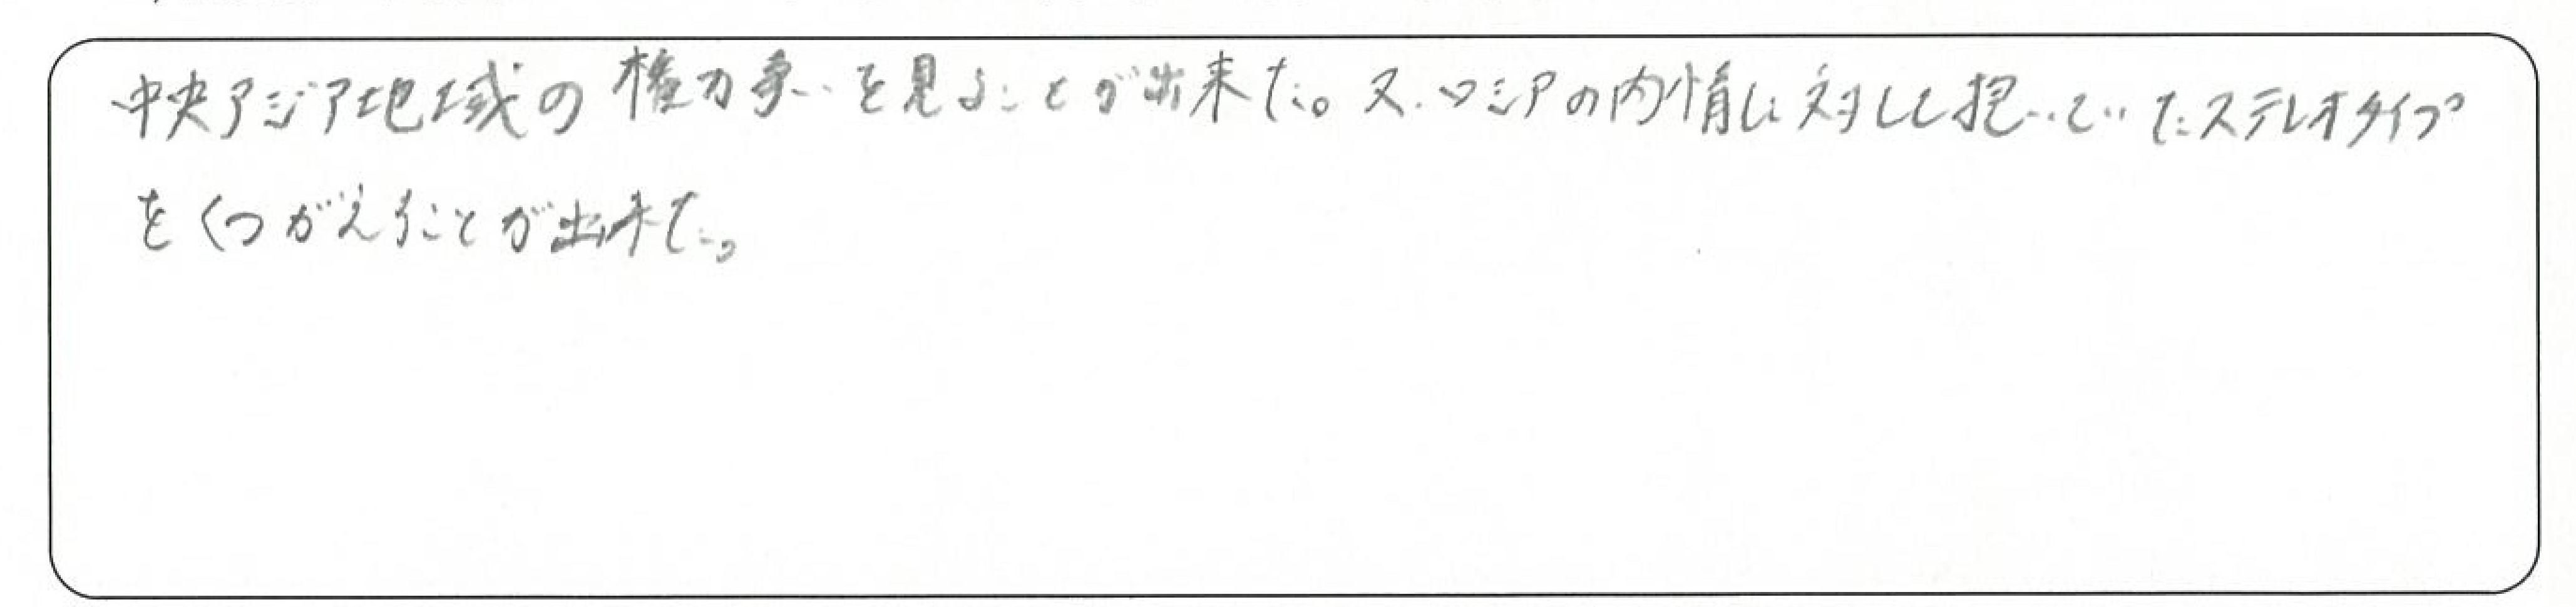 中央アジア地域の権力争いを見ることが出来た。又、ロシアの内情に対して抱いていたステレオタイプ
をくつがえすことが出来た。